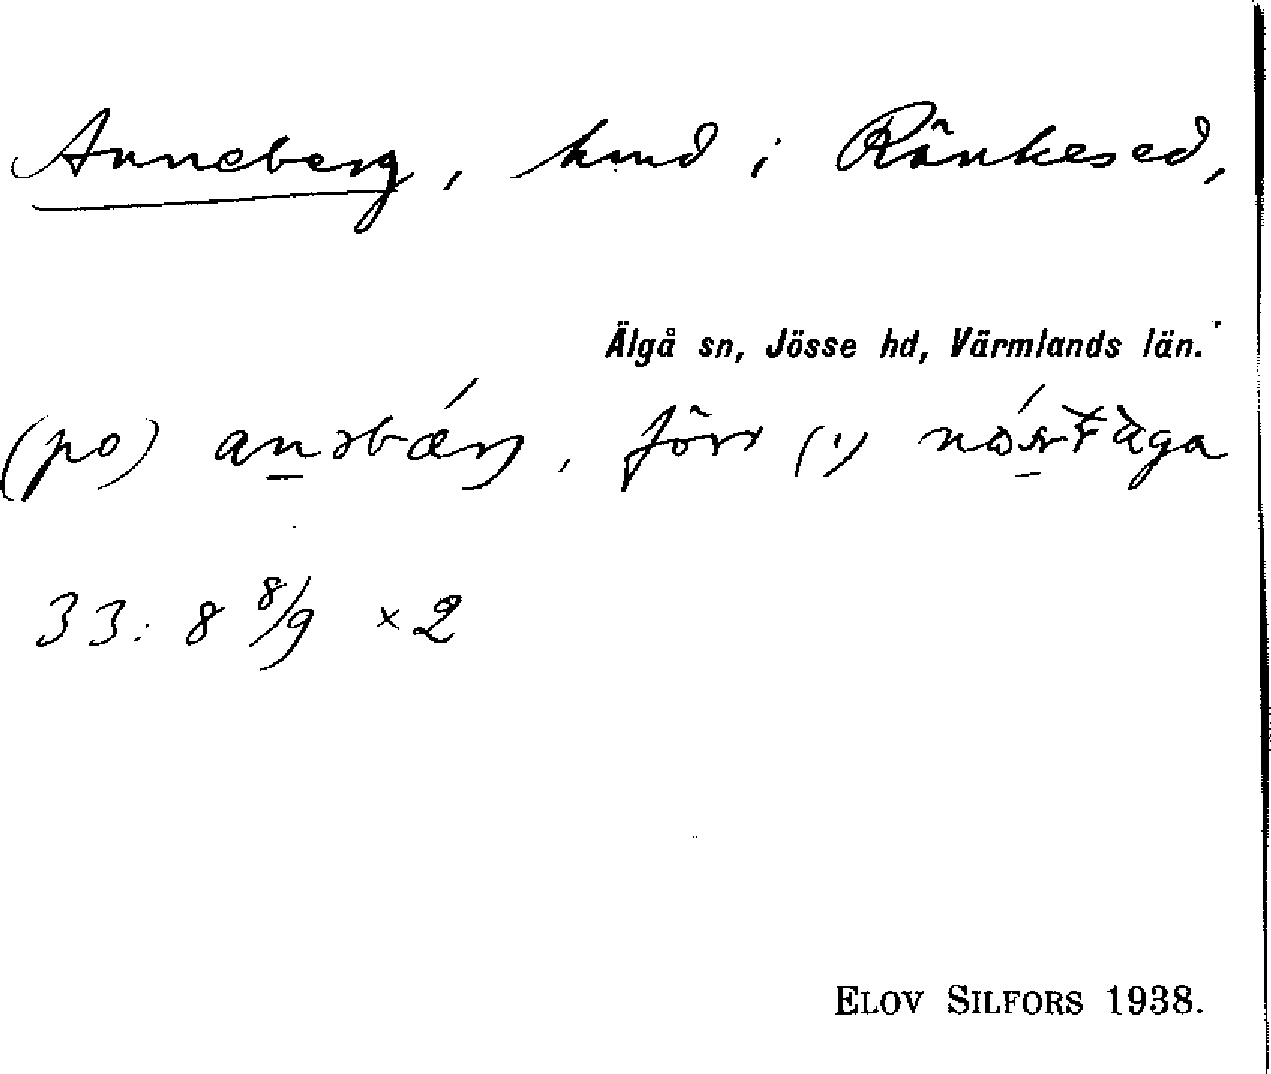 Anneberg, hmd i Rånkesed,
Älgå sn, Jösse hd, Värmlands län.
(po) förr (i)
33: 8 8/9 × 2
ELOV SILFORS 1938.